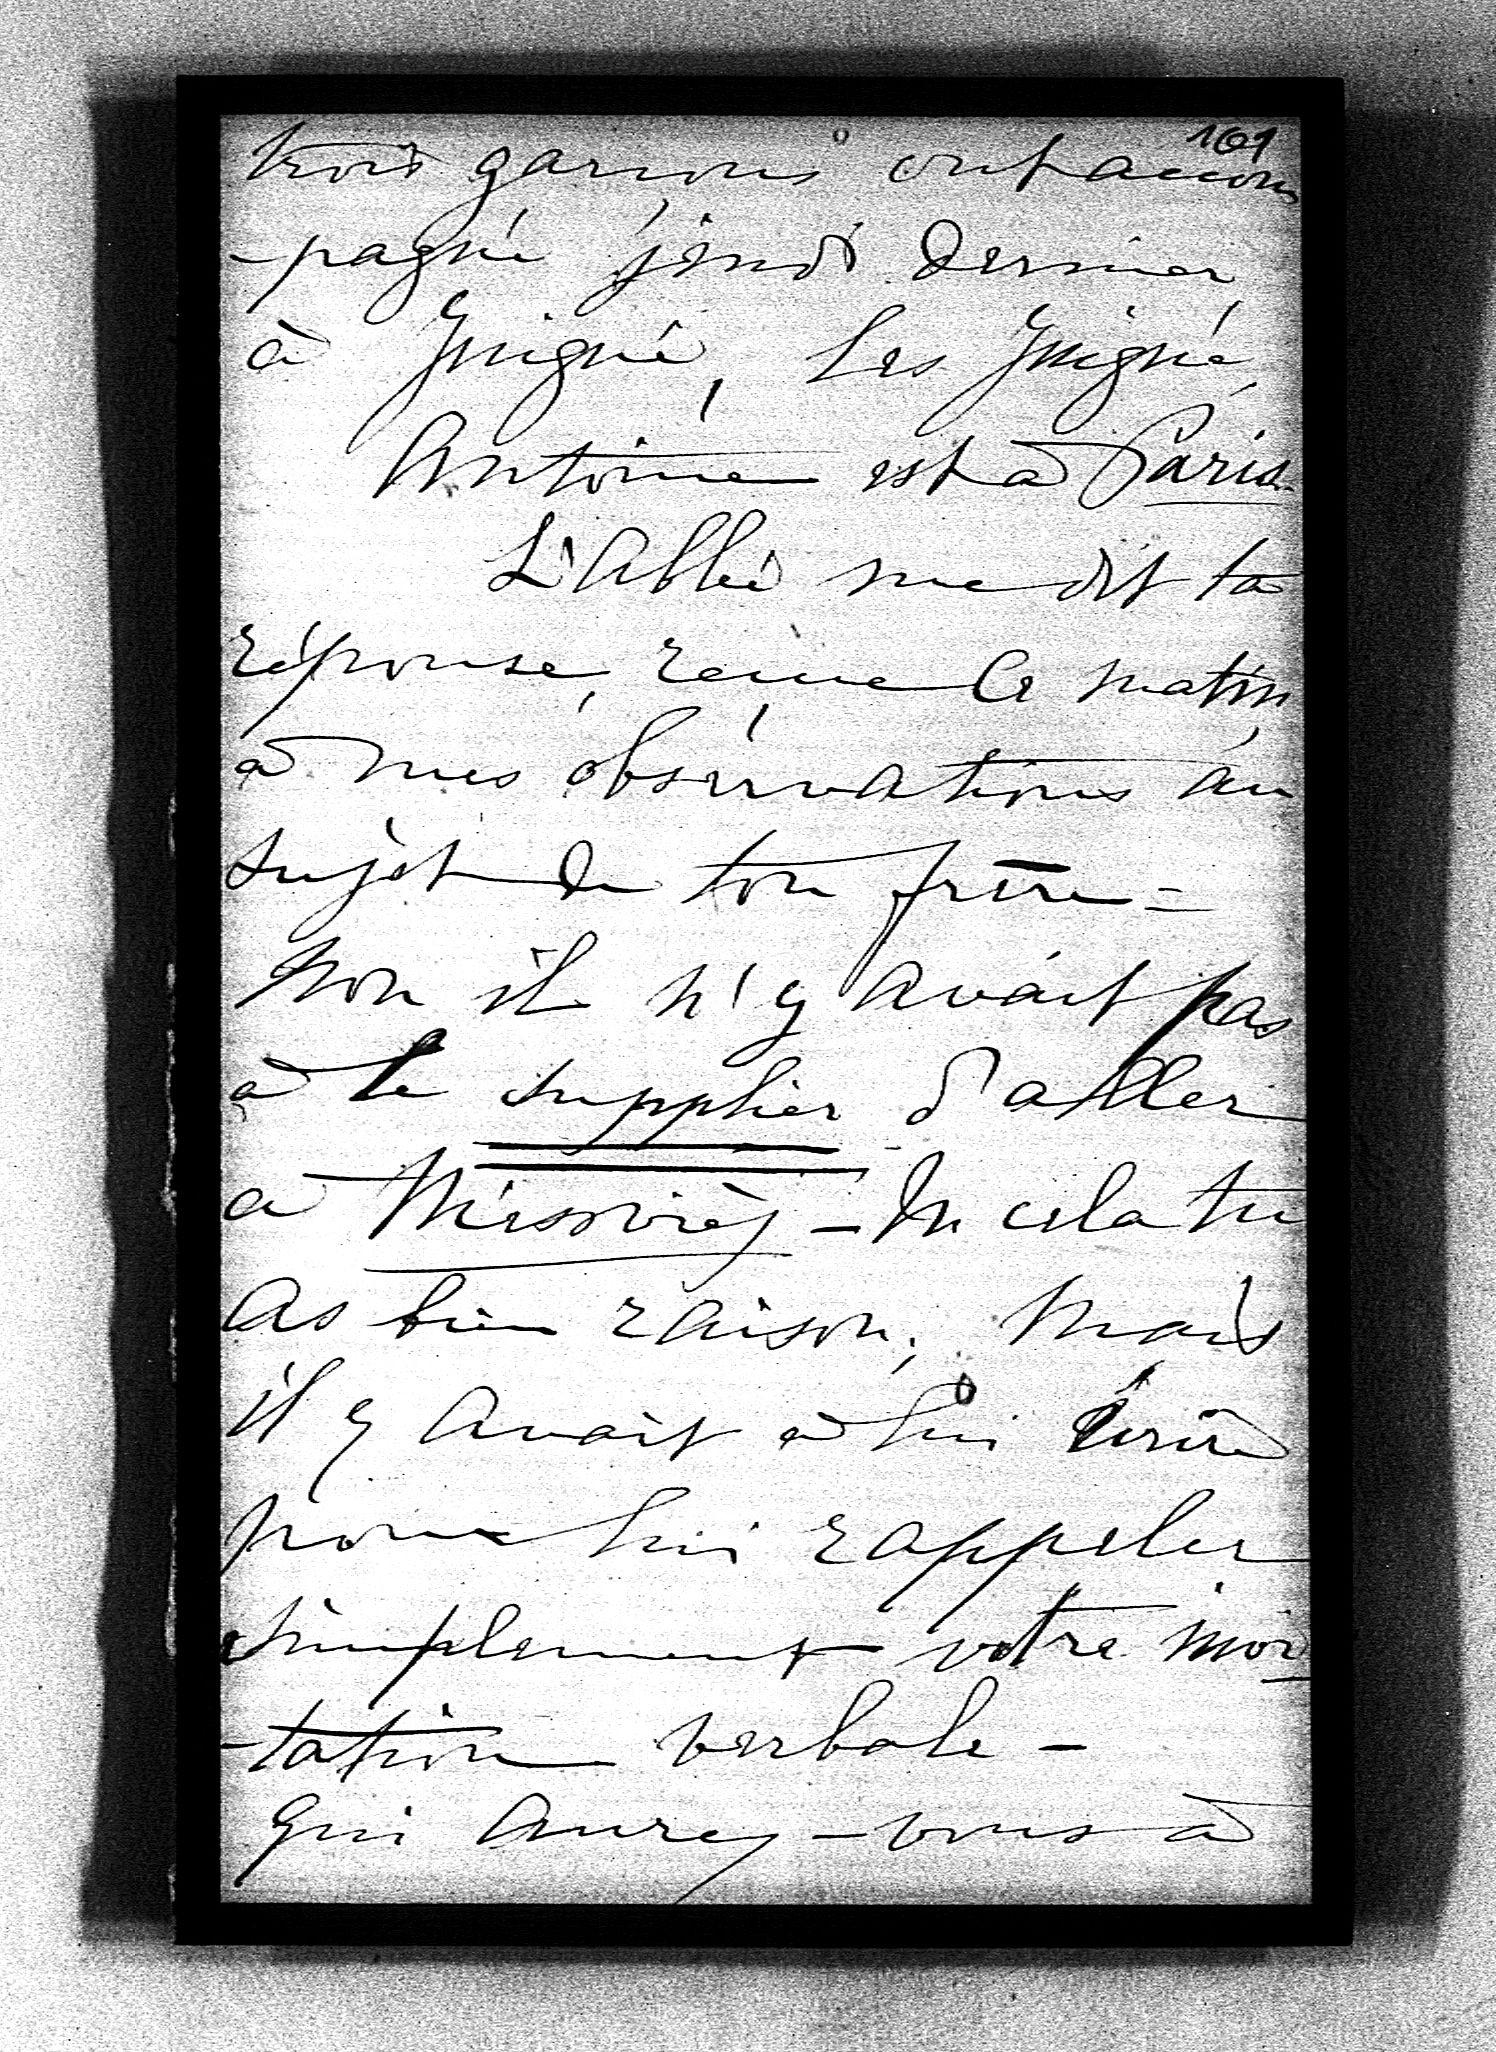 101
trois garçons ont accom
-pagné jeudi dernier
à Guigné, les Guigné,
Antoine est à Paris.
L'Abbé me dit ta
réponse, reçue ce matin
à mes observations au
sujet de ton frère =
Non il n'y avait pas
à le supplier d'aller
à Missiriès - En cela tu
as bien raison; mais
il y avait à lui écrire
pour lui rappeler
simplement votre invi
-tation verbale -
Qui aurez-vous à